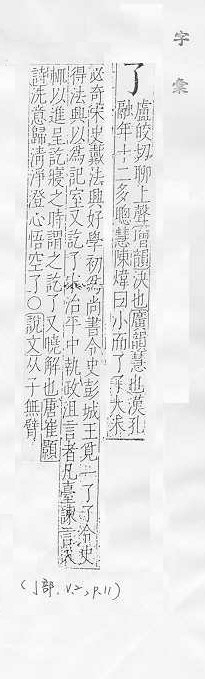 字彙
了
盧皎切聊上聲增韻決也廣韻慧也漢孔
融年十二多聰慧陳煒曰小而了了大未
必奇宋史戴法興好學初為尚書令史彭城王覓一了了令史
得法興以為記室又訖了宋治平中執政沮言者凡臺諫言狀
輒以進呈訖寢之時謂之訖了又曉解也唐崔顥
詩洗意歸清淨澄心悟空了○說文从子無臂
(亅部, v.2, p.11)